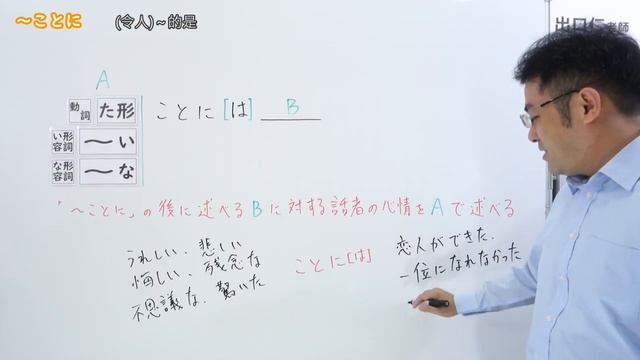 ～ことに (令人)～的是
出口仁老師
A
動詞 た形 ことに[は] B
い形容詞 ～い
な形容詞 ～な
「～ことに」の後に述べるBに対する話者の心情をAで述べる
うれしい、悲しい
悔しい、残念な
不思議な、驚いた
ことに[は]
恋人ができた、
一位になれなかった